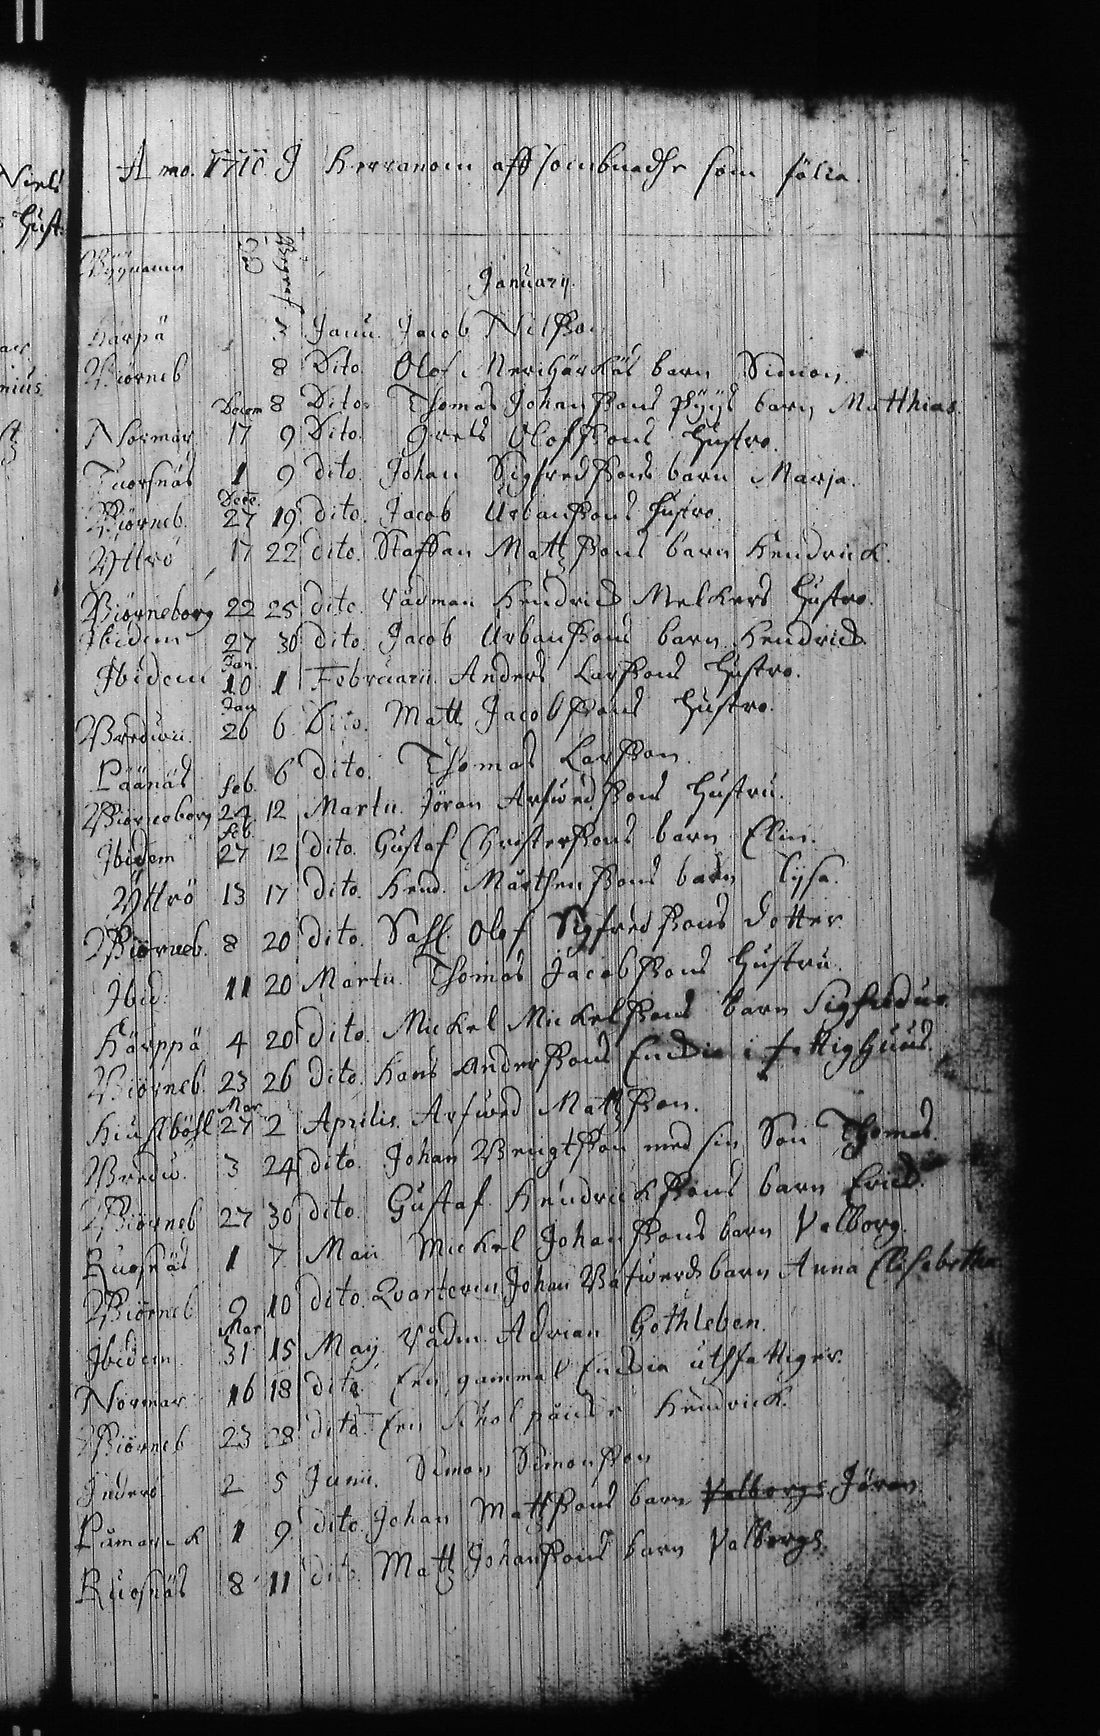 Niels
Hust:
nius
A:no. 1710. I Herranom affsombnadhe som fölia.
Bÿÿnamn Död Begraf
January.
Harpä 3 Janu. Jacob Nilsson
Biörneb 8 Dito. Olof Merihärkäs barn Simon.
Decem 8 Dito. Thomas Johanssons Pÿÿs barn Matthias.
Normar 17 9 Dito. Grels Olofssons Hustro.
Tuorsnäs 1 9 dito. Johan Sigfredssons barn Marja.
Dece.
Biörneb. 27 19 dito. Jacob Urbanssons hustro.
Yttrö 17 22 dito. Staffan Mattssons barn Hendrick.
Biörneborg 22 25 dito. Rådman Hendrich Melkers Hustro.
Ibidem 27 30 dito. Jacob Urbanssons barn Hendrich
Jan.
Ibidem 10 1 Februarii. Anders Larssons Hustro.
Jan
Bredwii. 26 6 Dito. Matt Jacobssons Hustro.
Päänäs 6 dito. Thomas Larsson.
feb.
Biörneborg 24 12 Martii. Jöran Arfwedssons Hustru.
feb.
Ibidem 27 12 dito. Gustaf Christerssons barn Elin.
Yttrö 13 17 dito. Hend. Mårthenssons barn Lysa.
Biörneb. 8 20 dito. Sahl. Olof Sigfredssons dotter.
Ibid: 11 20 Martii. Thomas Jacobssons Hustru.
Härppä 4 20 dito. Mickel Mickelssons barn Sigfredus.
Biörneb. 23 26 dito. Hans Anderssons Enckia i fattighuus.
Mar
Kiuhlböhl 27 2 Aprilis. Arfwed Mattsson.
Bredw. 3 24 dito. Johan Bengtsson med sin Son Thomas.
Biörneb 27 30 dito. Gustaf Hendrickssons barn Erich.
Ruosnäs 1 7 Maii Mickel Johanssons barn Valborg.
Biörneb 9 10 dito. Qvarteren Johan barn Anna Elisabetha
Mar
Ibidem 31 15 Maÿ Rådm. Adrian Gothleben.
Normar 16 18 dito. Een gammal Enckia uthfattiger.
Biörneb 23 28 dito. Een Hendrick.
Inderö 2 5 Junii. Simon Simonsson
Påmarck 1 9 dito. Johan Mattssons barn Valborgs Jöran.
Ruosnäs 8 11 dito. Matts Johanssons barn Valborgs.